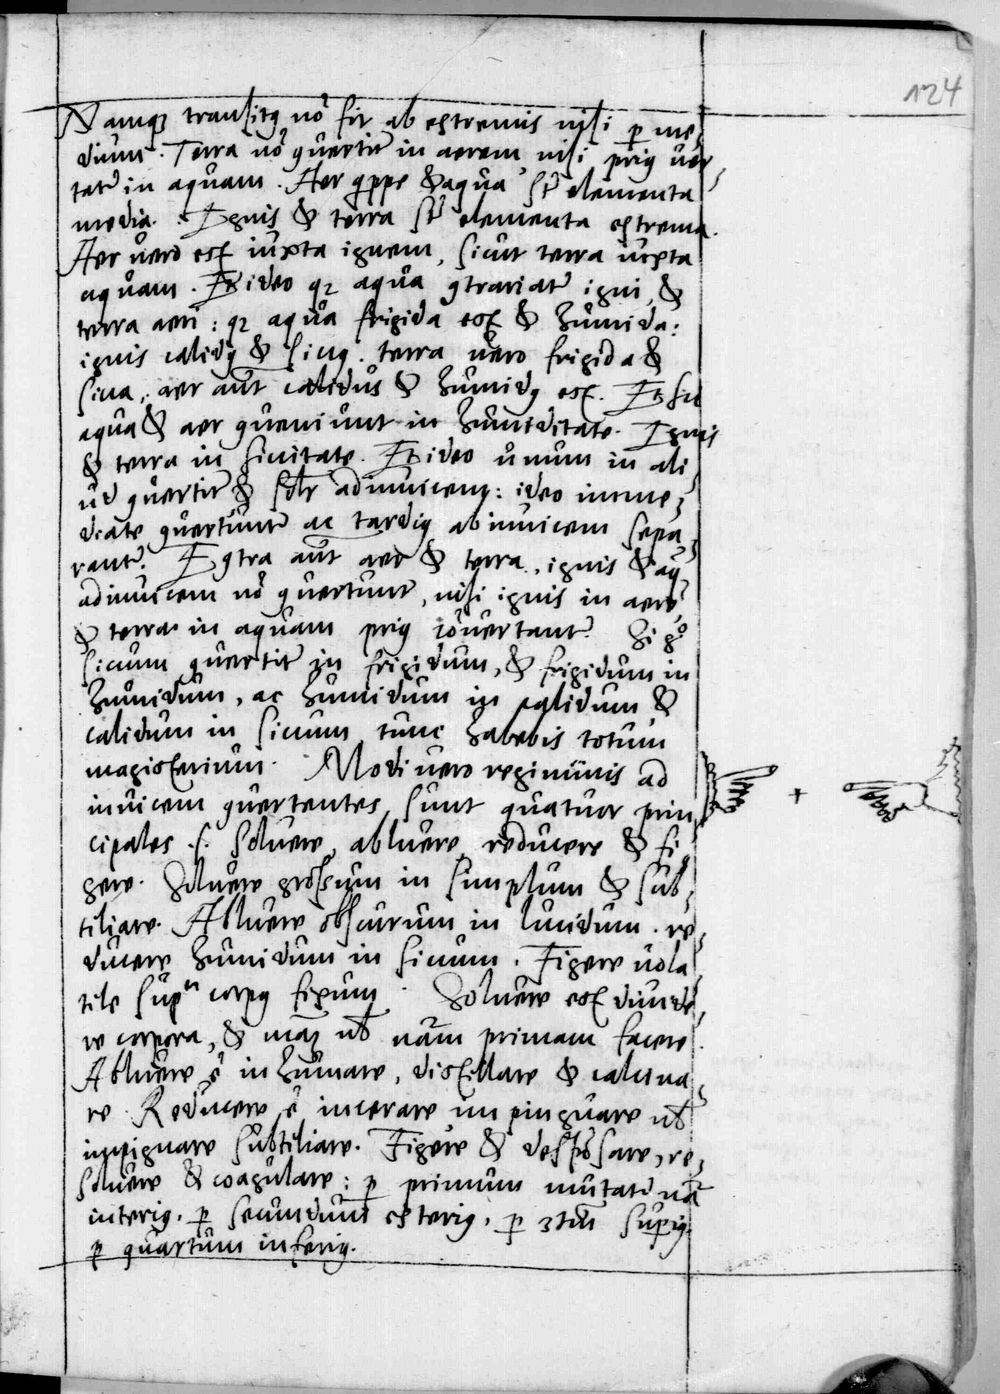 124
Namq̃ transitꝯ nō fit ab extremis nisi ꝑ me,
dium. Terra nō ꝯvertit̃ in aerem nisi priꝯ ver,
tat̃ in aquam. Aer qippe & aqua st̃ elementa
media. Ignis & terra st̃ elementa extrema.
Aer vero est iuxta ignem, sicut terra iuxta
aquam. Et ideo qꝫ aqua ꝯtrariat̃ igni, &
terra aeri: qꝫ aqua frigida est & humida:
ignis calidꝯ & siccꝯ. terra vero frigida &
sicca, aer aut̃ calidus & humidꝯ est. Et sic
aqua & aer ꝯveniunt in humiditate. Ignis
& terra in siccitate. Et ideo unum in ali
ud ꝯvertit̃ & adinvicem: ideo inme,
diate ꝯvertunt̃ ac tardiꝯ abinvicem sepa,
rant̃. E ꝯtra aut̃ aer & terra, ignis & aq̃
adinvicem nō ꝯvertunt̃, nisi ignis in aerē
& terra in aquam priꝯ cōvertant̃. Si gͦ
siccum ꝯvertit̃ in frigidum, & frigidum in
humidum, ac humidum in calidum &
calidum in siccum tunc habebis totum
magisterium. Modi vero regiminis ad
invicem ꝯvertentes sunt quatuor prin
cipales .s. solvere, abluere, reducere & fi,
gere. Solvere grossum in simplum & sub,
tiliare. Abluere obscurum in lucidum. re,
ducere humidum in siccum. Figere vola
tile sup̃ corpꝯ fixum. Solvere est divide,
re corpora, & mat̃ primam facere.
Abluere ē inhumare, distillare & calcina,
re. Reducere ē incerare inpinguare ul̃
impignare subtiliare. Figere & desp̃sare, re,
solvere & coagulare: ꝑ primum mutat̃ nā
interiꝯ. ꝑ secundum exteriꝯ. ꝑ 3tiū supiꝯ.
ꝑ quartum inferiꝯ.